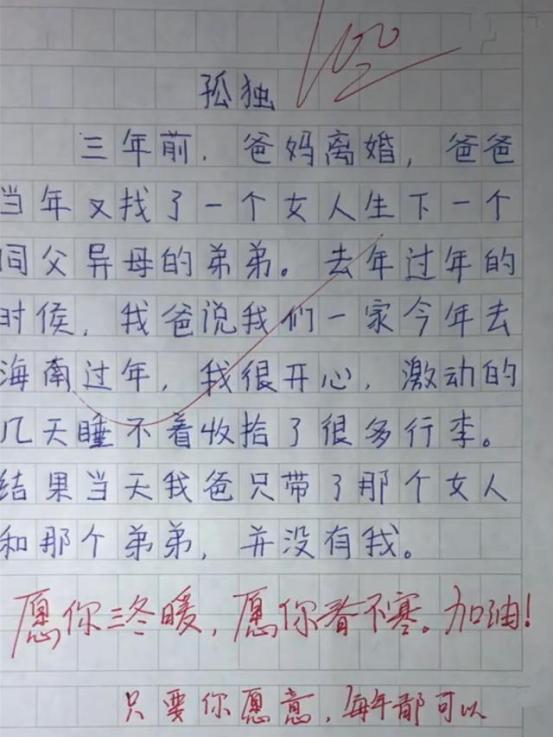 100
孤独
三年前．爸妈离婚，爸爸
当年又找了一个女人生下一个
同父异母的弟弟。去年过年的
时候，我爸说我们一家今年去
海南过年，我很开心，激动的
几天睡不着收拾了很多行李。
结果当天我爸只带了那个女人
和那个弟弟，并没有我。
愿你三冬暖，愿你春不寒。加油!
只要你愿意，每年都可以